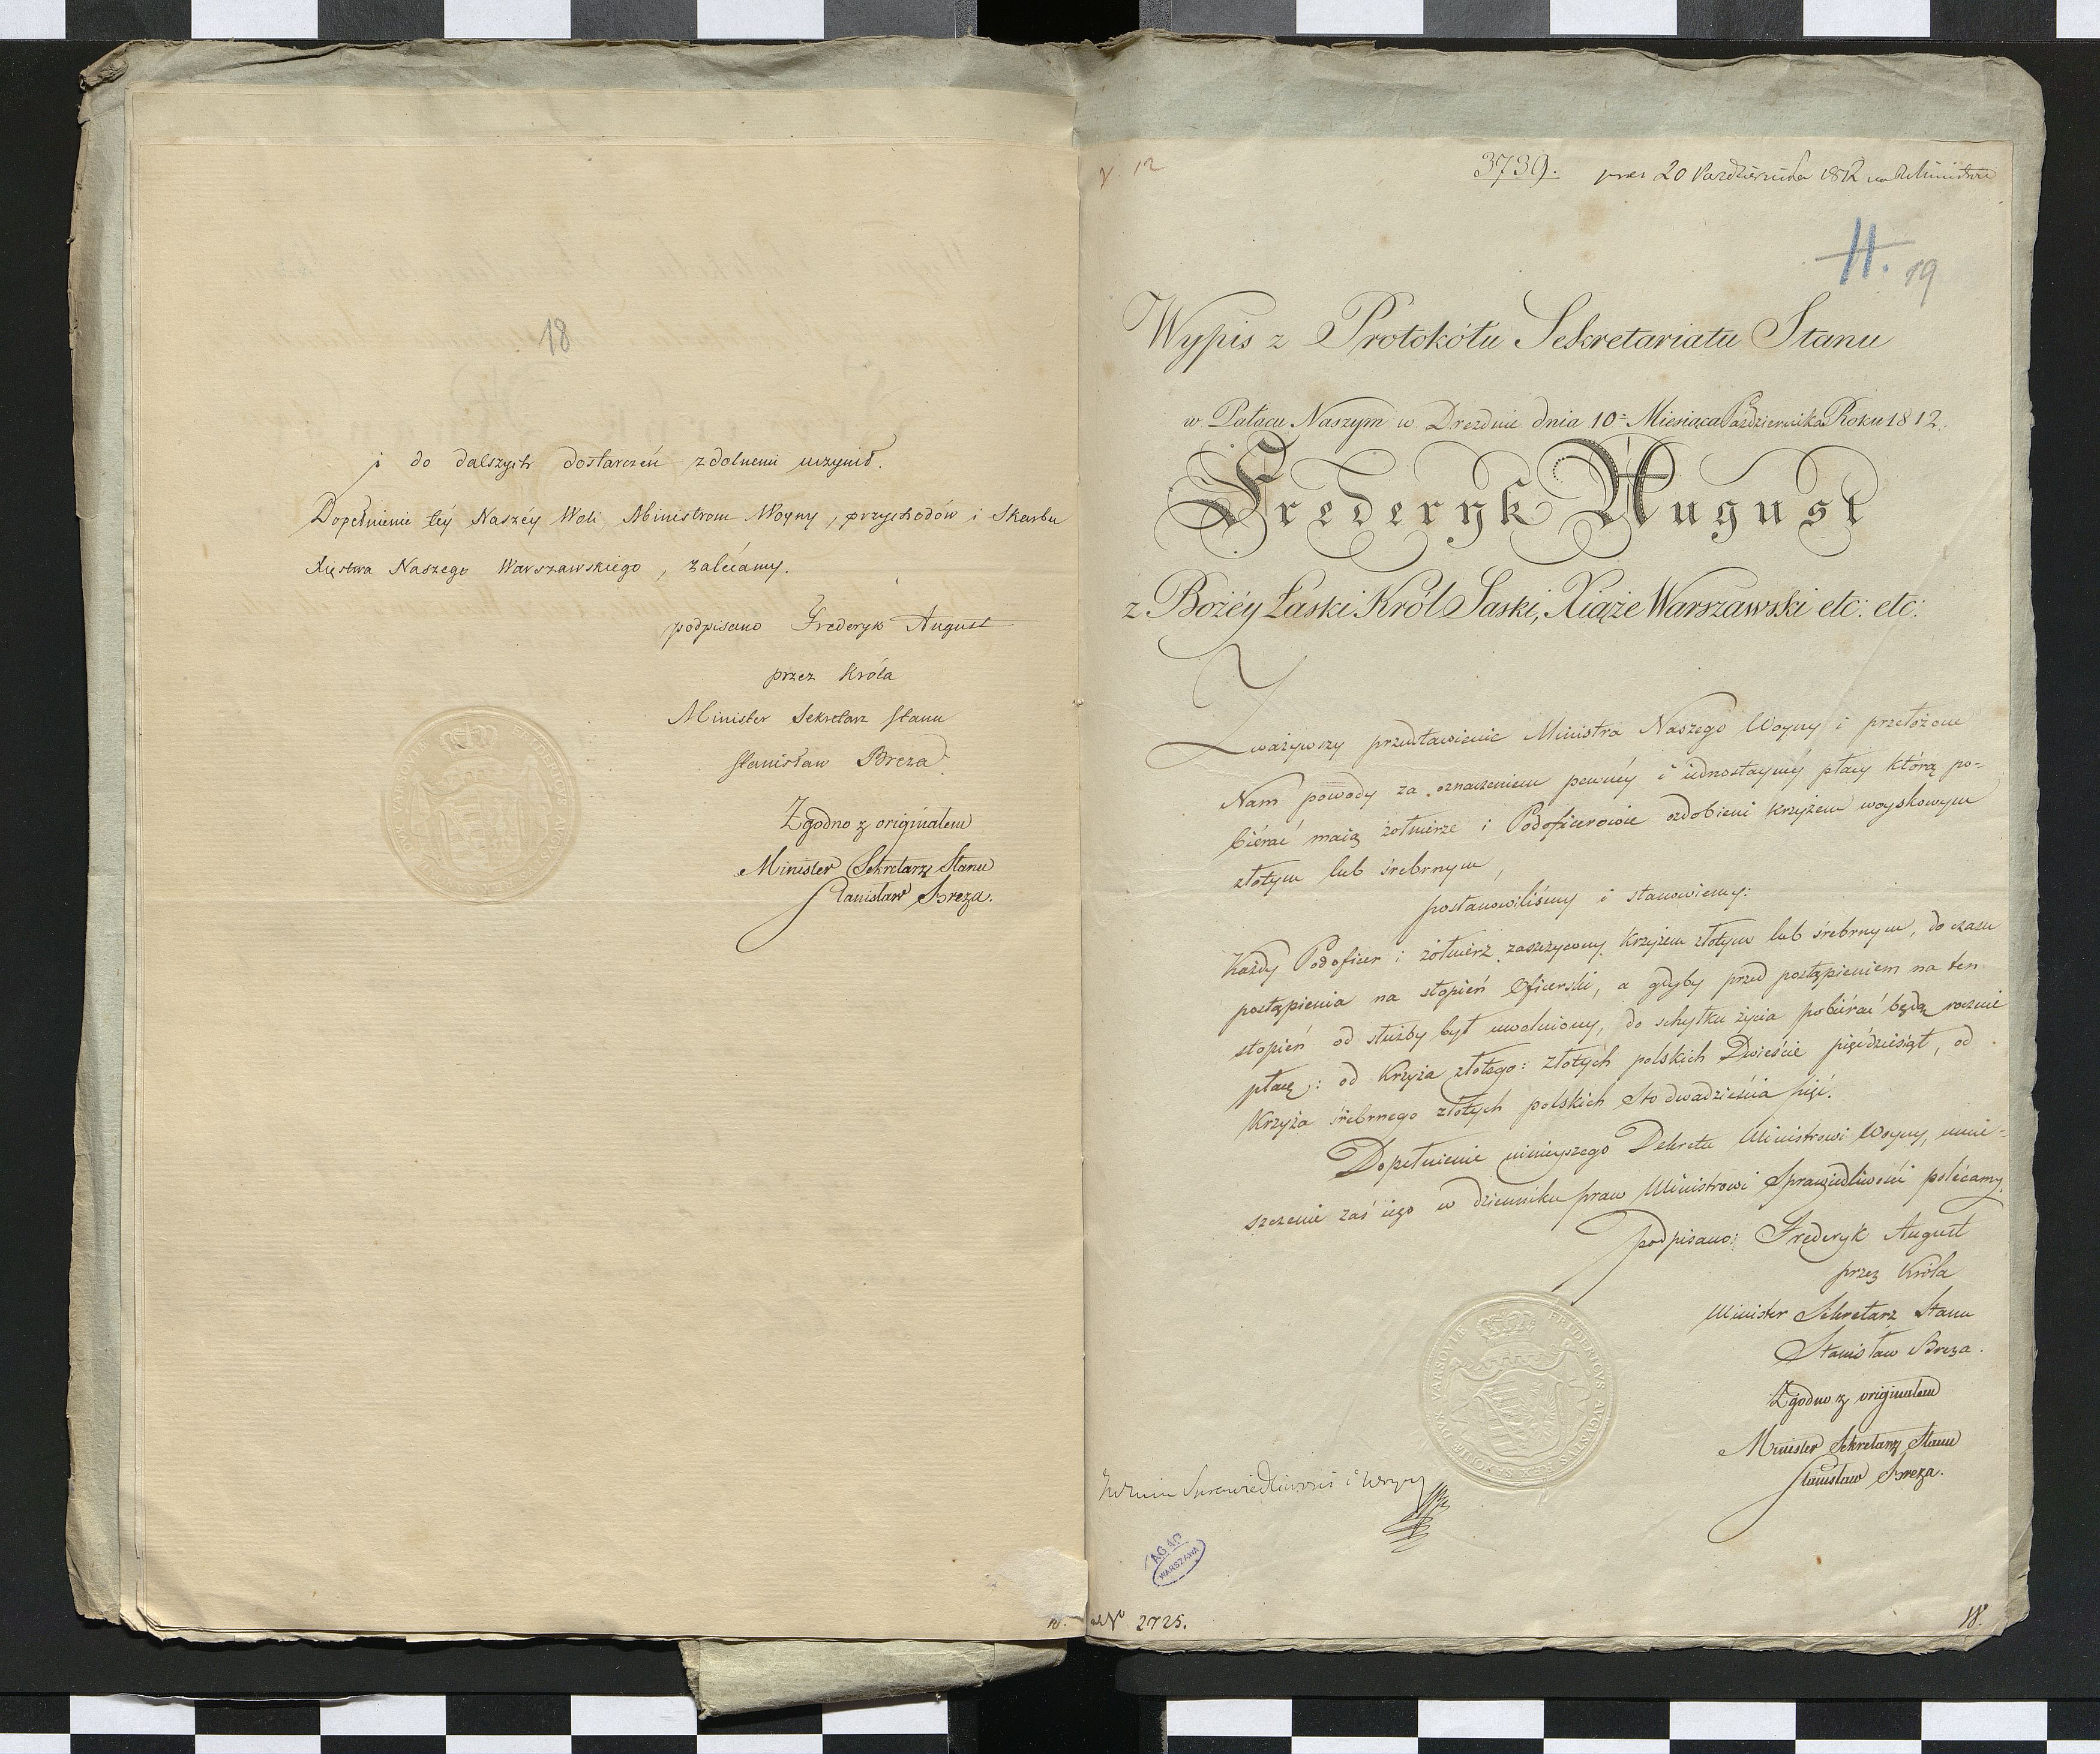 18
i do dalszych dostarczeń zdolnemi uczynić.
Dopełnienie téy Naszéy Woli Ministrom Woyny, przychodów i Skarbu
Xięstwa Naszego Warszawskiego, zalécamy.
podpisano Frederyk August
przez Króla
Minister Sekretarz Stanu
Stanisław Breza.
Zgodno z originałem
Minister Sekretarz Stanu
Stanisław Breza.
FRIDERICVS AVGVSTVS REX SAXONIÆ DVX VARSOVIÆ
12
3739. 20 Października 1812
11. 19
Wypis z Protokółu Sekretariatu Stanu
w Pałacu Naszym w Dreźnie dnia 10 Miesiąca Października Roku 1812.
Frederyk August
z Bożéy Łaski Król Saski, Xiąże Warszawski etc: etc:
Zważywszy przedstawienie Ministra Naszego Woyny i przełożone
Nam powody za oznaczeniem pewnéy i iednostaynéy płacy którą po-
biérać maią żołnierze i Podoficerowie ozdobieni krzyżem woyskowym
złotym lub śrebrnym,
postanowiliśmy i stanowiemy:
Każdy Podoficer i żołnierz zaszczycony Krzyżem złotym lub śrebrnym, do czasu
postąpienia na stopień Oficerski, a gdyby przed postąpieniem na ten
stopień od służby był uwolniony, do schyłku życia pobiérać będą rocznie
płacę: od Krzyża złotego: złotych polskich Dwieście pięćdziesiąt, od
Krzyża śrebrnego złotych polskich Sto dwadzieścia pięć.
Dopełnienie ninieyszego Dekretu Ministrowi Woyny, umie-
szczenie zaś iego w dzienniku praw Ministrowi Sprawiedliwości polécamy.
podpisano: Frederyk August
przez Króla
Minister Sekretarz Stanu
Stanisław Breza.
Zgodno z originałem
Minister Sekretarz Stanu
Stanisław Breza.
FRIDERICVS AVGVSTVS REX SAXONIÆ DVX VARSOVIÆ
Sprawiedliwości i Woyny
AGAD
WARSZAWA
ad No 2725.
18.